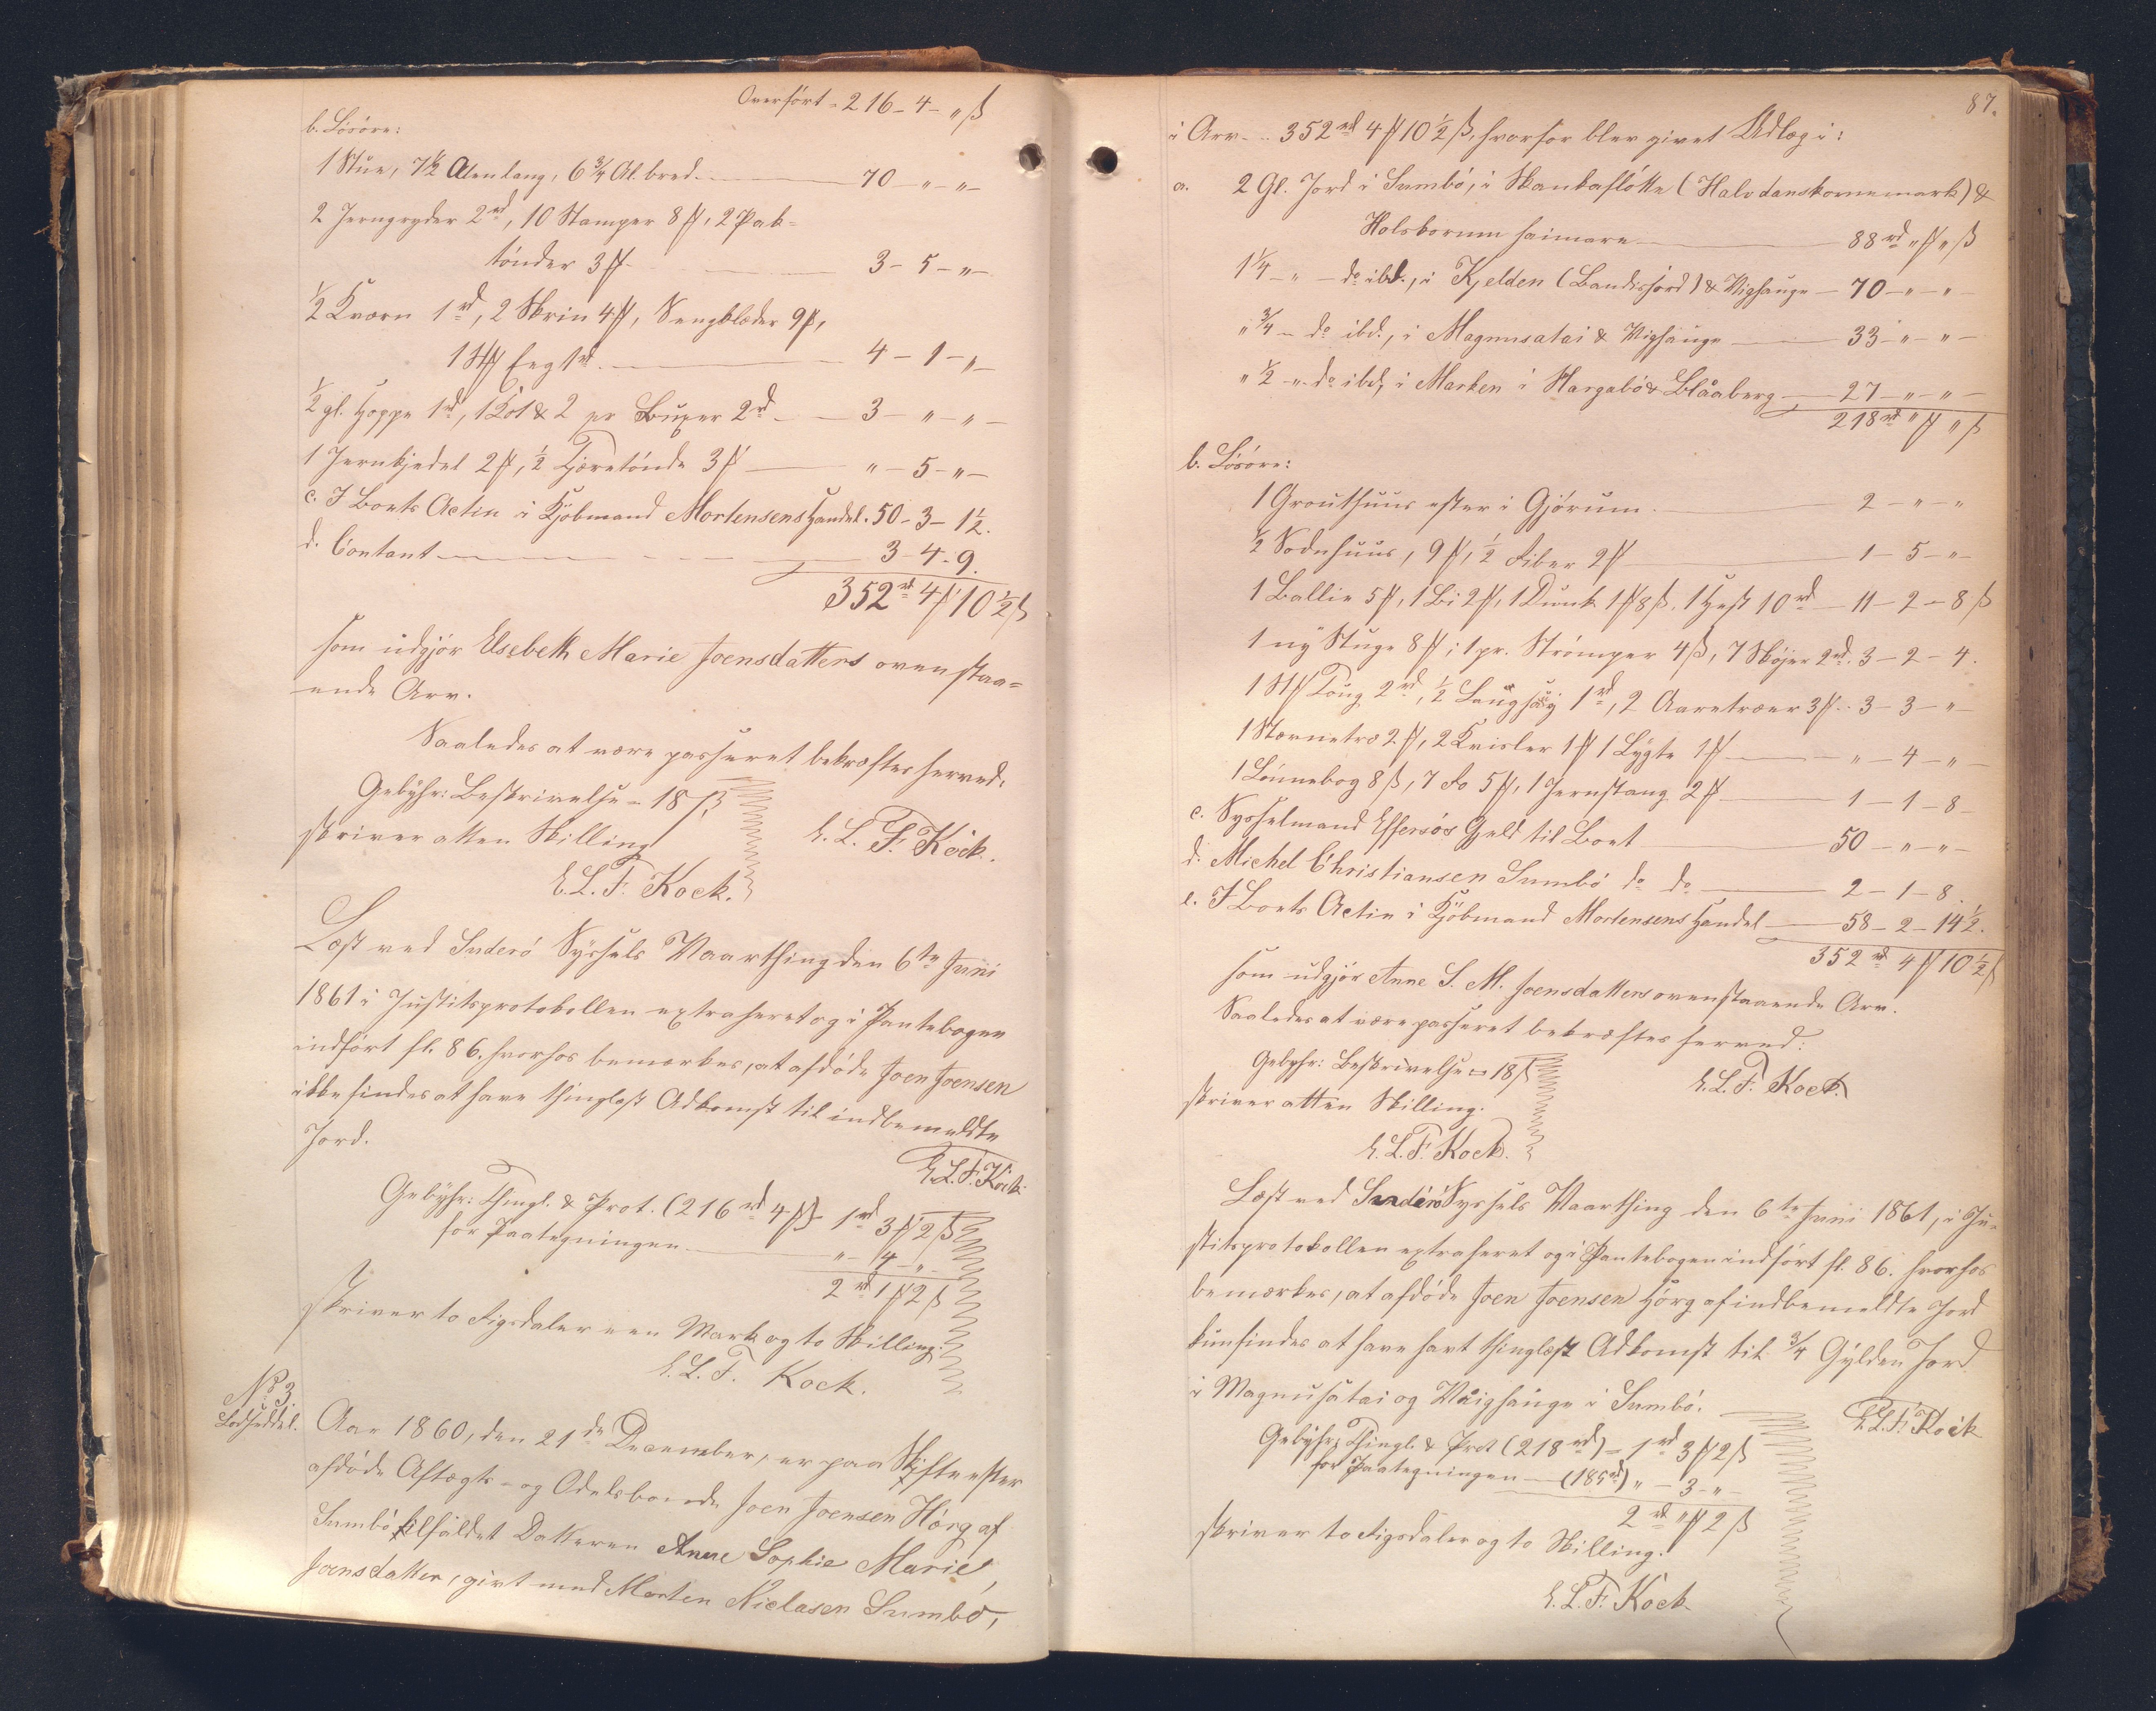 Overført - 216 - 4 - " ß
b. Løsøre:
1 Stue, 7 1/2 Alen lang, 6 3/4 Al. bred. 70 - " - "
2 Jerngryder 2 rd, 10 Stamper 8 ℳ, 2 Pak-
tønder 3 ℳ 3 - 5 - "
1/2 Kværn 1 rd, 2 Skrin 4 ℳ, Sengklæder 9 ℳ,
1 Stk 1 rd. 4 - 1 - "
1/2 gl. Hoppe 1 rd, 1 & 2 pr Buxer 2 rd 3 - " - "
1 Jernkjedel 2 ℳ, 1/2 Tjæretønde 3 ℳ " - 5 - "
c. I Boets Actie i Kjøbmand Mortensens Handel. 50 - 3 - 1 1/2.
d. Contant 3 - 4 - 9.
352 rd 4 ℳ 10 1/2 ß
som udgjør Elsebeth Marie Joensdatters ovenstaa-
ende Arv.
Saaledes at være passeret bekræftes herved.
Gebyhr: Beskrivelse = 18 ß,
skriver atten Skilling
E. L. F. Kock.
E. L. F. Kock.
Læst ved Suderø Syssels Vaarthing den 6te Juni
1861 i Justitsprotokollen extraheret og i Pantebogen
indført fl. 86. hvorhos bemærkes, at afdøde Joen Joensen
ikke findes at have thinglæst Adkomst til indbemeldte
Jord.
E. L. F. Kock
Gebyhr: Thingl. & Prot. (216 rd 4 ℳ) 1 rd 3 ℳ 2 ß
for Paategningen " - 4 - "
2 rd 1 ℳ 2 ß
skriver to Rigsdaler een Mark og to Skilling.
E. L. F. Kock.
No 3.
Lodseddel.
Aar 1860, den 21de December, er paa Skifte efter
afdøde Aftægts- og Odelsbonde Joen Joensen Hørg af
Sumbø tilfaldet Datteren Anne Sophie Marie
Joensdatter, givt med Morten Niclasen Sumbø,
87.
i Arv - 352 rd 4 ℳ 10 1/2 ß, hvorfor blev givet Udlæg i:
a. 2 Gl. Jord i Sumbø, i Skankafløtte (Halvdanskornemark) &
Holsborum haimara 88 rd " ℳ " ß
1 1/4 - " - do ibd., i Kjelden (Bandisjord) & Vighauge - 70 - " - "
" 3/4 - do ibd., i Magnusatai & Vighauge 33 - " - "
" 1/2 - " - do ibd, i Marken i Hargabø & Blåaberg 27 - " - "
218 rd " ℳ " ß
b. Løsøre:
1 Grouthuus øster i Gjørum. 2 - " - "
1/2 Sodnhuus, 9 ℳ, 1/2 Fiber 2 ℳ 1 - 5 - "
1 Ballie 5 ℳ, 1 Bi 2 ℳ, 1 Dunk 1 ℳ 8 ß, 1 Hest 10 rd 11 - 2 - 8 ß
1 ny Stuge 8 ℳ, 1 pr. Strømper 4 ß, 7 Skøjer 2 rd. 3 - 2 - 4.
1 Stk Toug 2 rd, 1/2 1 rd, 2 Aaretræer 3 ℳ 3 - 3 - "
1 Stævnetræ 2 ℳ, 2 Kvisler 1 ℳ 1 Lygte 1 ℳ " - 4 - "
1 Lønnebog 8 ß, 7 Fo 5 ℳ, 1 Jernstang 2 ℳ 1 - 1 - 8
c. Sysselmand Effersøs Gjeld til Boet 50 - " - "
d. Michel Christiansen Sumbø do do 2 - 1 - 8.
e. I Boets Actie i Kjøbmand Mortensens Handel 58 - 2 - 14 1/2.
352 rd 4 ℳ 10 1/2 ß
som udgjør Anne S. M. Joensdatters ovenstaaende Arv.
Saaledes at være passeret bekræftes herved:
Gebyhr: Beskrivelse = 18 ß
skriver atten Skilling.
E. L. F. Kock.
E. L. F. Kock.
Læst ved Suderø Syssels Vaarthing den 6te Juni 1861, i Ju-
stitsprotokollen extraheret og i Pantebogen indført fl. 86. hvorhos
bemærkes, at afdøde Joen Joensen Hørg af indbemeldte Jord
kun findes at have havt thinglæst Adkomst til 3/4 Gylden Jord
i Magnusatai og Vaighauge i Sumbø.
E. L. F. Kock
Gebyhr: Thingl. & Prot (218 rd) = 1 rd 3 ℳ 2 ß
for Paategningen (185 rd) " - 3 - "
2 rd " ℳ 2 ß
skriver to Rigsdaler og to Skilling.
E. L. F. Kock.